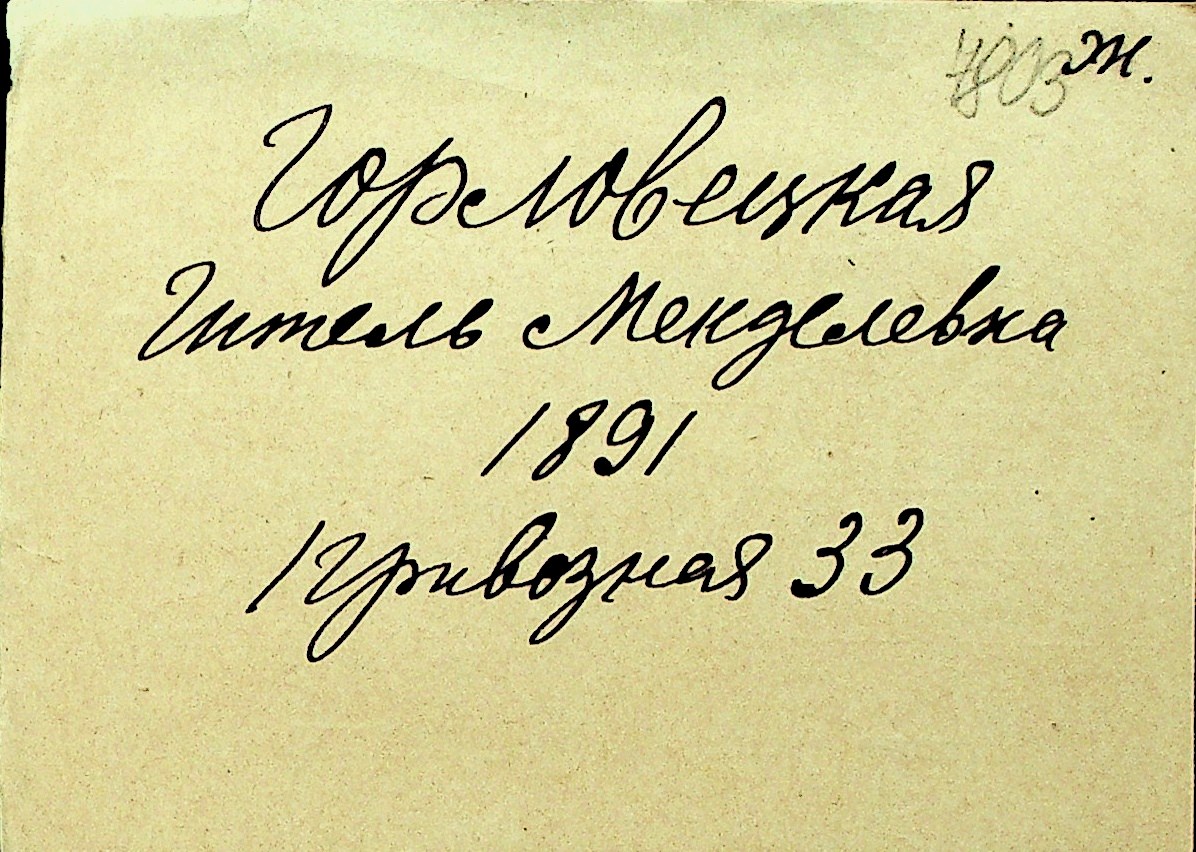 4803 ж.
Горловецкая
Гитель Менделевна
1891
Привозная 33